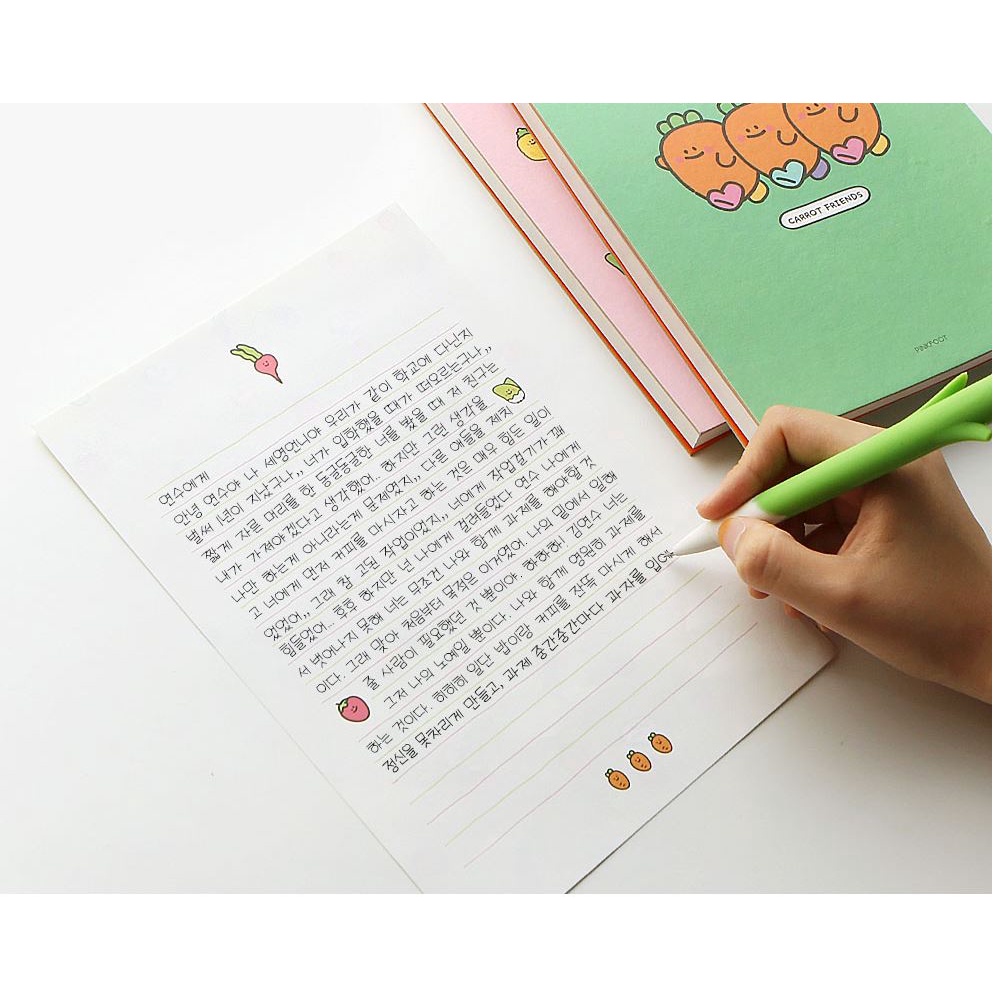 연수에게
안녕 연수야 나 세영언니야 우리가 같이 학교에 다닌지
벌써 1년이 지났구나,, 너가 입학했을 때가 떠오르는구나,,
짧게 자른 머리를 한 동글동글한 너를 봤을 때 저 친구는
내가 가져야겠다고 생각했어. 하지만 그런 생각을
나만 하는게 아니라는게 문제였지,, 다른 애들을 제치
고 너에게 먼저 커피를 마시자고 하는 것은 매우 힘든 일이
었었어,, 그래 참 고된 작업이었지,, 너에게 작업걸기가 꽤
힘들었어... 후후 하지만 넌 나에게 걸려들었다 연수 나에게
서 벗어나지 못해 너는 무조건 나와 함께 과제를 해야할 것
이다. 그래 맞아 처음부터 목적은 이거였어. 나의 밑에서 일해
줄 사람이 필요했던 것 뿐이야. 하하하 김연수 너는
그저 나의 노예일 뿐이다. 나와 함께 영원히 과제를
하는 것이다. 히히히 일단 밥이랑 커피를 잔뜩 마시게 해서
정신을 못차리게 만들고, 과제 중간중간마다 과자를 입에
CARROT FRIENDS
PINKFOOT